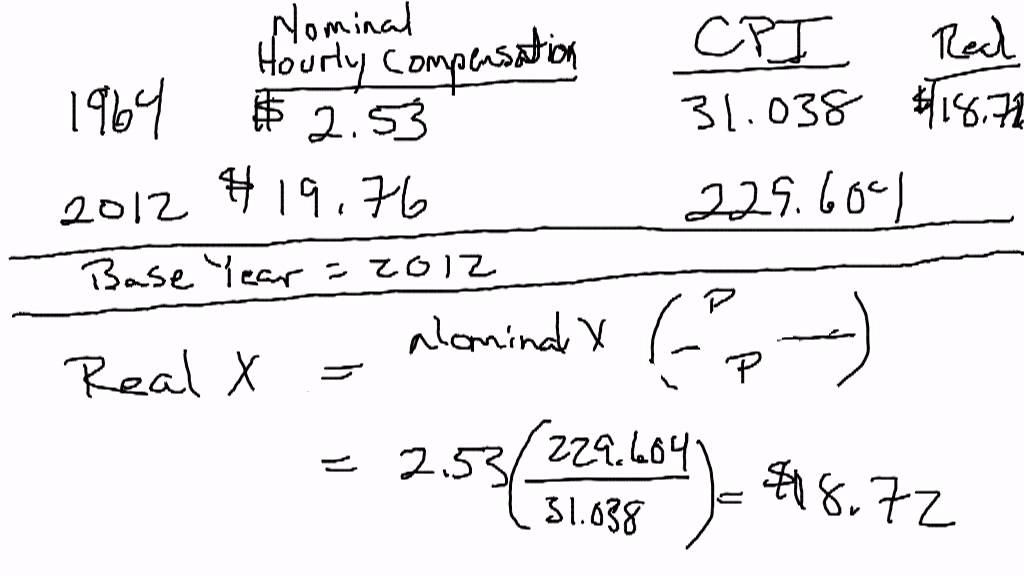 Nominal
Hourly Compensation CPI Real
1964 $ 2.53 31.038 $18.72
2012 $ 19.76 229.604
Base Year = 2012
Real X = Nominal X (P / P)
= 2.53 (229.604 / 31.038) = $18.72